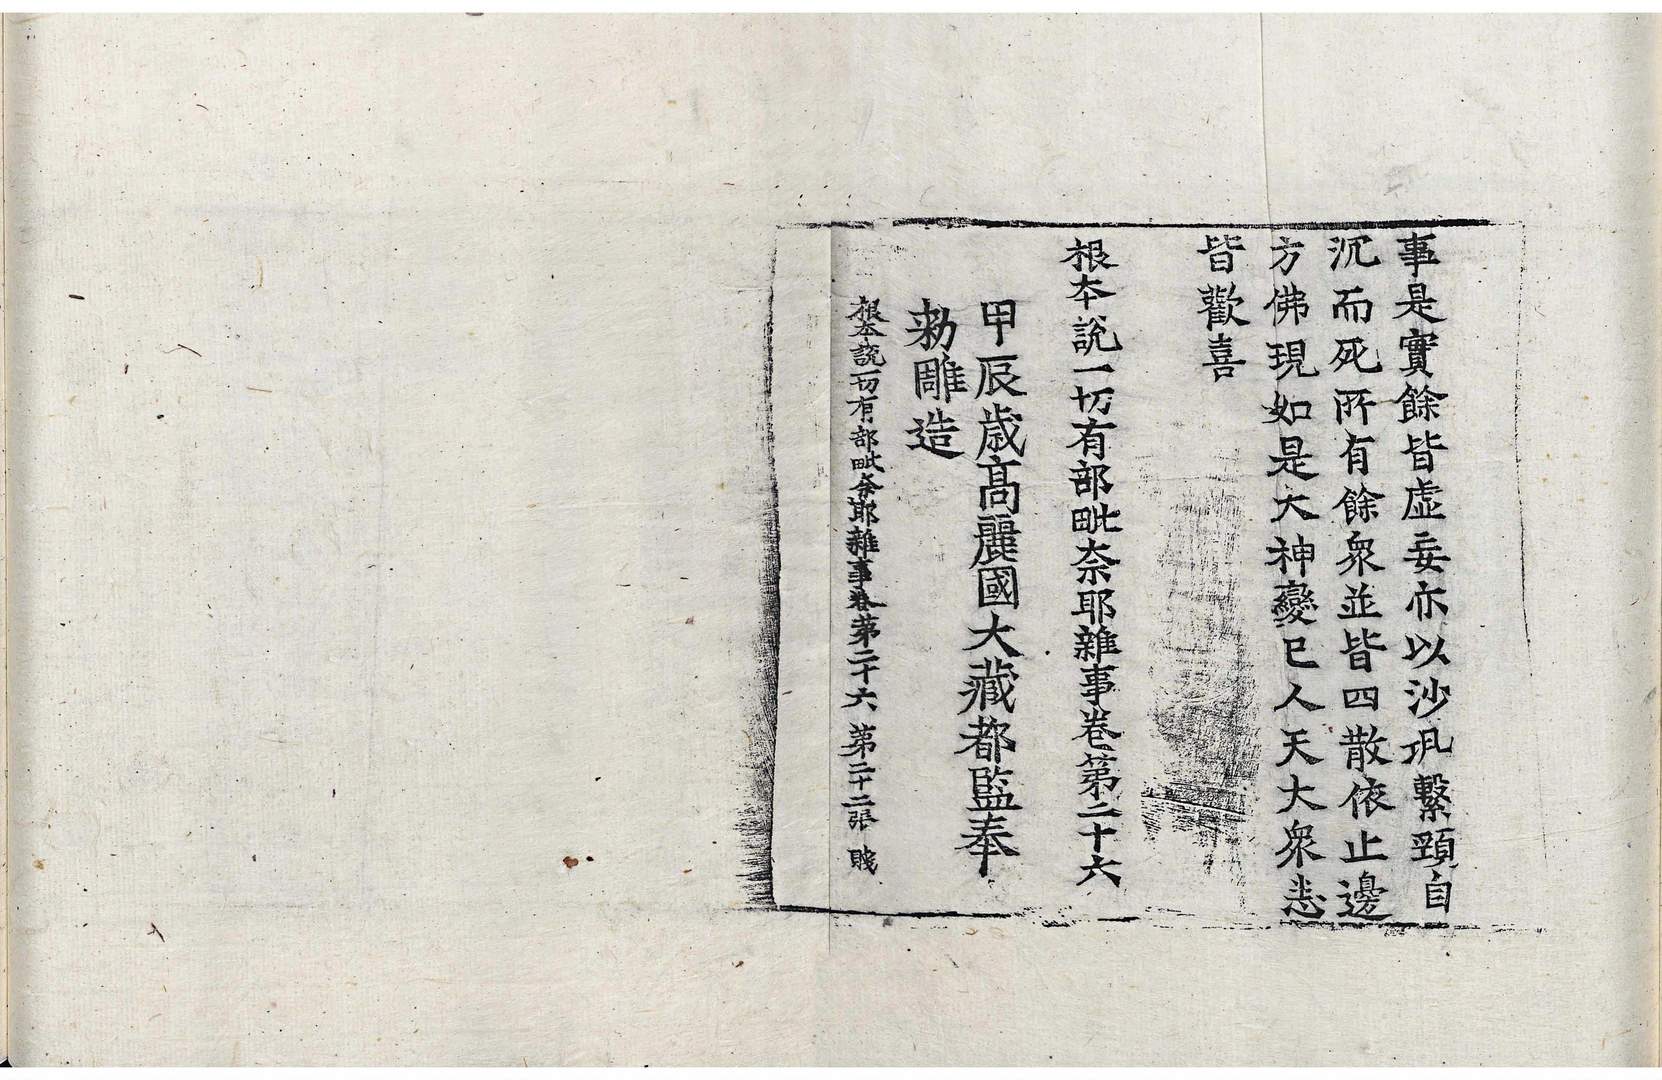 事是實餘皆虛妄亦以沙瓨繫頸自
沉而死所有餘衆並皆四散依止邊
方佛現如是大神變已人天大衆悉
皆歡喜
根本說一切有部毗奈耶雜事卷第二十六
甲辰歳高麗國大藏都監奉
勑雕造
根本說一切有部毗奈耶雜事卷第二十六 第二十二張 賤